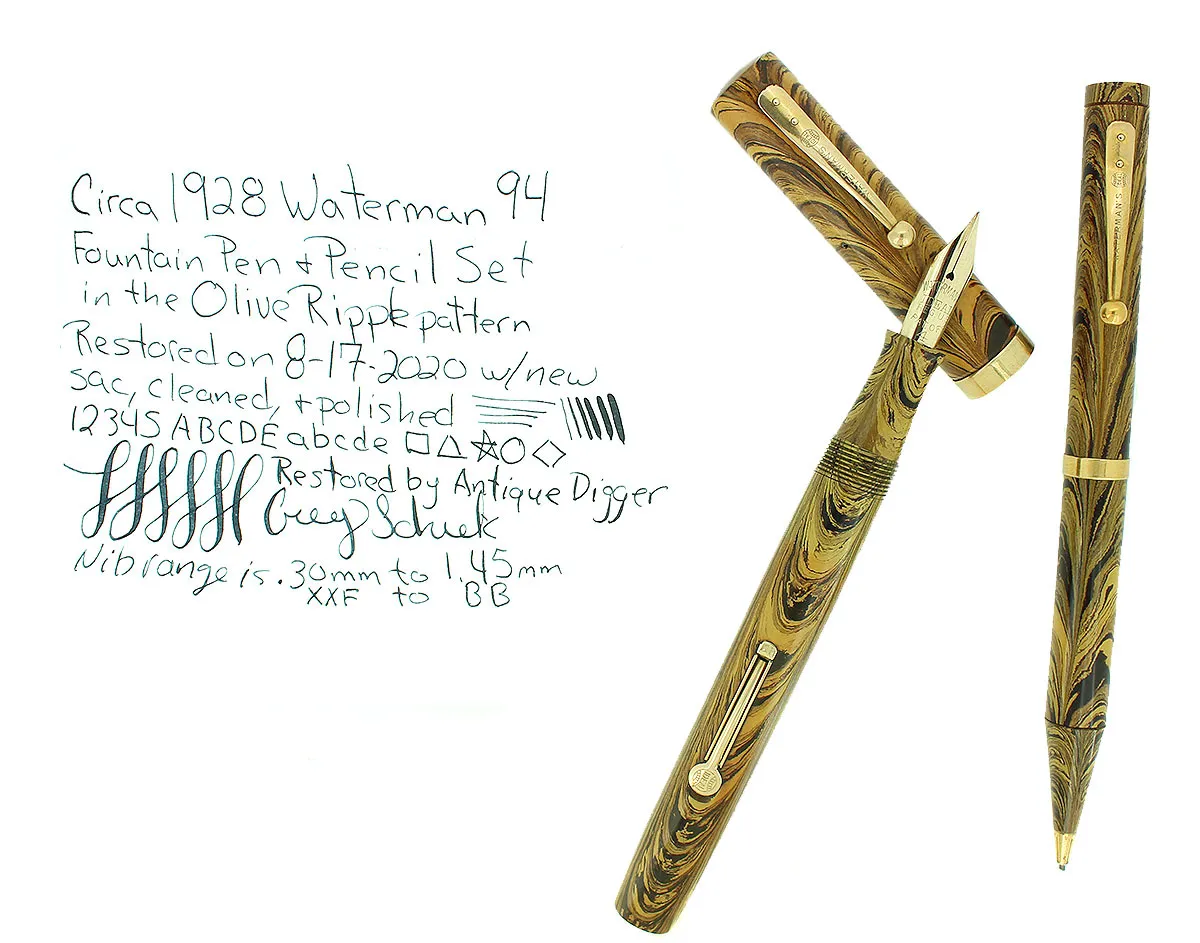 Circa 1928 Waterman 94
Fountain Pen + Pencil Set
in the Olive Ripple pattern
Restored on 8-17-2020 w/new
sac, cleaned, + polished
12345 ABCDE abcde
Restored by Antique Digger
Greg
Nib range is .30mm to 1.45mm
XXF to BB
WATERMAN'S